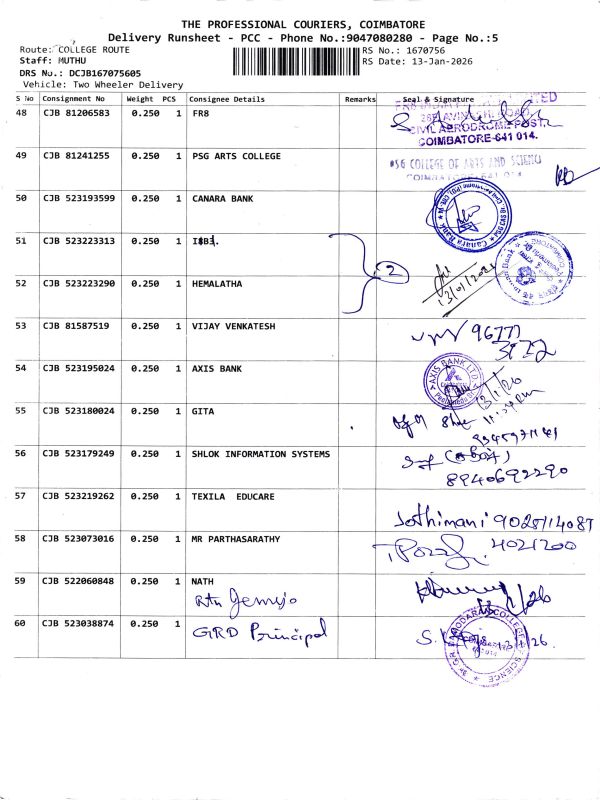 THE PROFESSIONAL COURIERS, COIMBATORE
Delivery Runsheet - PCC - Phone No.:9047080280 - Page No.:5
Route: COLLEGE ROUTE
Staff: MUTHU
DRS No.: DCJB167075605
Vehicle: Two Wheeler Delivery
RS No.: 1670756
RS Date: 13-Jan-2026
S No Consignment No Weight PCS Consignee Details Remarks Seal & Signature
48 CJB 81206583 0.250 1 FR8
CIVIL AERODROME POST,
COIMBATORE-641 014.
49 CJB 81241255 0.250 1 PSG ARTS COLLEGE
PSG COLLEGE OF ARTS AND SCIENCE
COIMBATORE-641 014
50 CJB 523193599 0.250 1 CANARA BANK
Canara Bank
51 CJB 523223313 0.250 1
2
52 CJB 523223290 0.250 1 HEMALATHA
13/01/2026
53 CJB 81587519 0.250 1 VIJAY VENKATESH
54 CJB 523195024 0.250 1 AXIS BANK
AXIS BANK LTD
13/1/26
55 CJB 523180024 0.250 1 GITA
56 CJB 523179249 0.250 1 SHLOK INFORMATION SYSTEMS
8940692290
57 CJB 523219262 0.250 1 TEXILA EDUCARE
Jothimani 9028114087
58 CJB 523073016 0.250 1 MR PARTHASARATHY
59 CJB 522060848 0.250 1 NATH
60 CJB 523038874 0.250 1
GIRD Principal